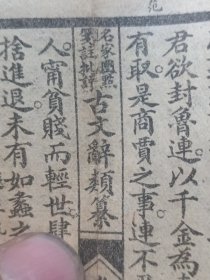 君欲封魯連。以千金為
有取是商賈之事。連不
名家圈點
箋註批評
古文辭類纂
人。甯貧賤而輕世肆
捨進退。未有如蠡之